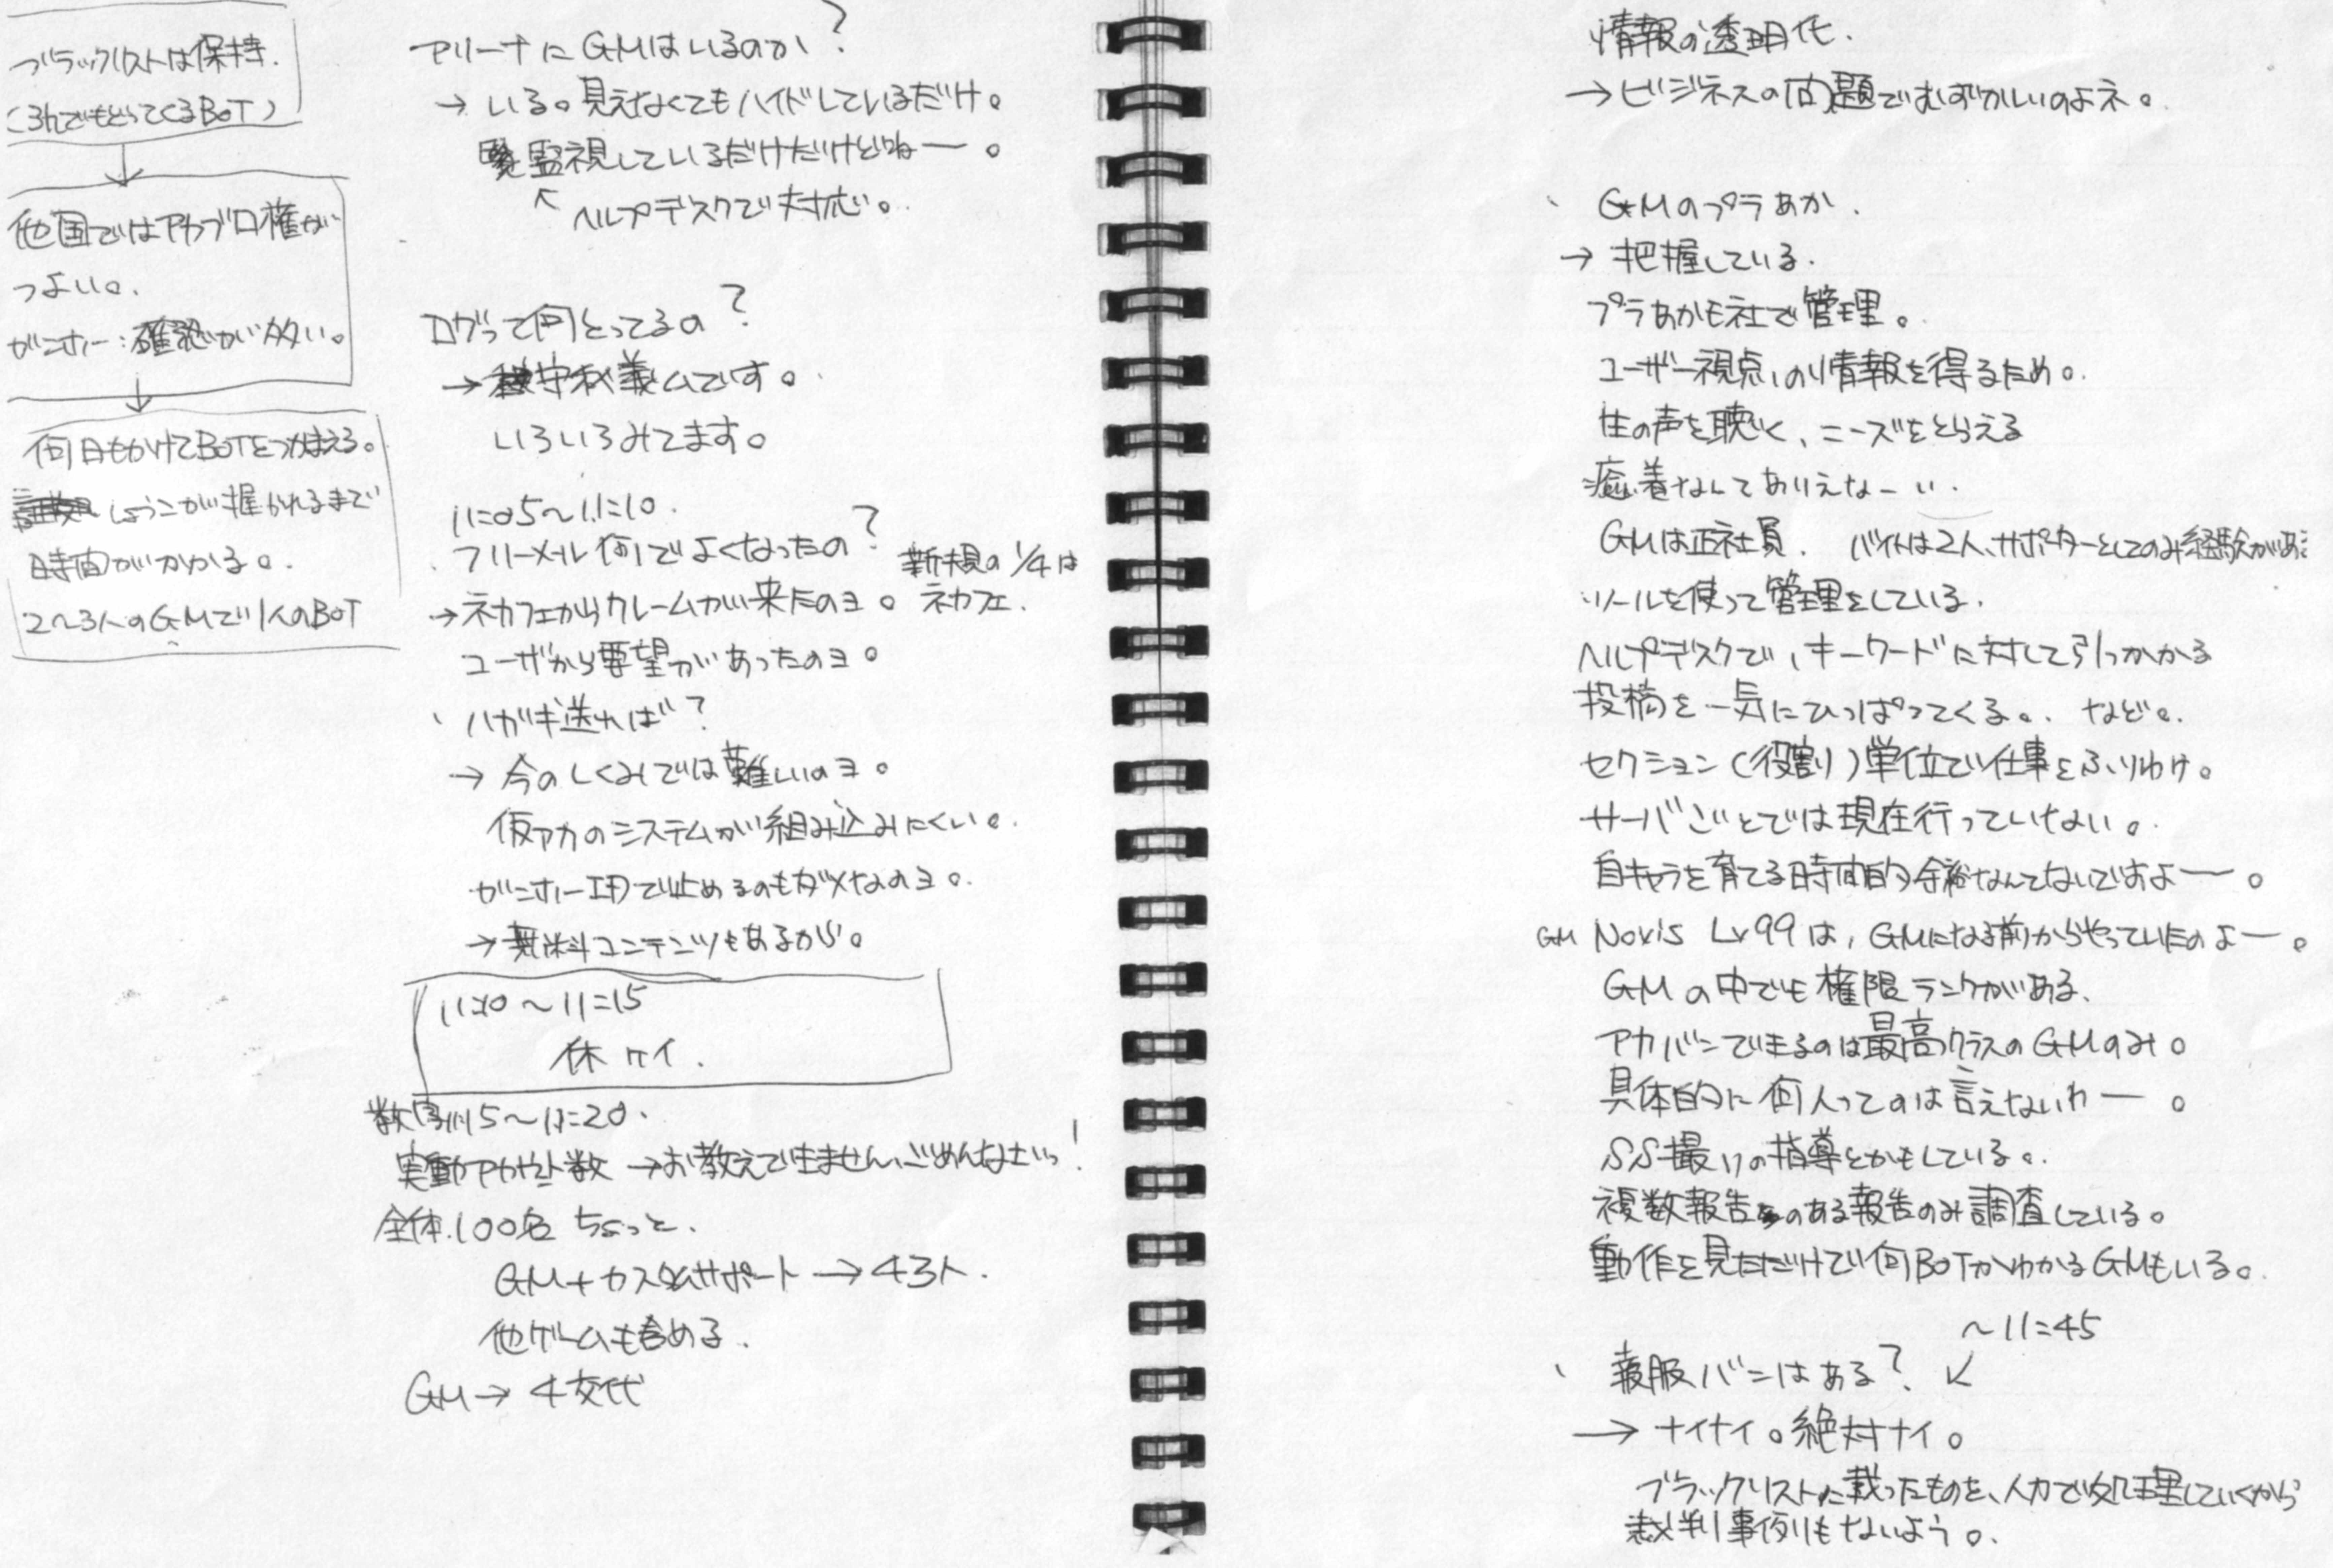 ブラックリストは保持.
(3んでもどってくるBOT)
他国ではアカブロ権が
つよい。
ガンホー:確認が多い。
何日もかけてBOTをつかまえる。
しょうこが握られるまで
時間がかかる。
2〜3人のGMで1人のBOT
アリーナにGMはいるのか?
→いる。見えなくてもハイドしているだけ。
監視しているだけだけどねー。
↖ヘルプデスクで対応。
ログって何とってるの?
→守秘義ムです。
いろいろみてます。
11:05〜11:10.
フリーメール何でよくなったの?
新規の1/4は
ネカフェ.
→ネカフェからクレームが来たのヨ。
ユーザから要望があったのヨ。
、ハガキ送れば?
→今のしくみでは難しいのヨ。
仮アカのシステムが組み込みにくい。
ガンホーIDで止めるのもダメなのヨ。
→無料コンテンツもあるから。
11:10〜11:15
休ケイ.
数字 11:15〜11:20.
実動アカウント数→お教えできません、ごめんなさいっ!
全体100名ちょっと.
GM+カスタムサポート→43人.
他ゲームも含める.
GM→4交代
情報の透明化.
→ビジネスの問題でむずかしいのよネ。
、GMのプラあか.
→把握している.
プラあかも社で管理。
ユーザー視点の情報を得るため。
生の声を聴く、ニーズをとらえる
癒着なんてありえなーい.
GMは正社員. バイトは2人、サポーターとしてのみ経験がある
ツールを使って管理をしている.
ヘルプデスクで、キーワードに対して引っかかる
投稿を一気にひっぱってくる。 など。
セクション(役割り)単位で仕事をふりわけ。
サーバごとでは現在行っていない。
自キャラを育てる時間的余裕なんてないですよー。
GM Novis Lv99は,GMになる前からやっていたのよー。
GMの中でも権限ランクがある.
アカバンできるのは最高クラスのGMのみ。
具体的に何人ってのは言えないわー。
SS撮りの指導とかもしている。
複数報告のある報告のみ調査している。
動作を見ただけで何BOTかわかるGMもいる。
〜11:45
、報服バンはある?↙
→ナイナイ。絶対ナイ。
ブラックリストに載ったものを、人力で処理していくから
裁判事例もないよう。